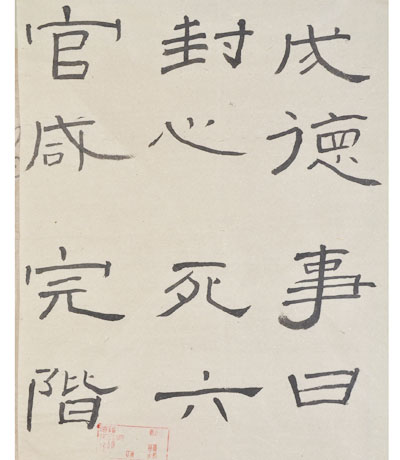 成徳事曰
封心死六
官咸完階